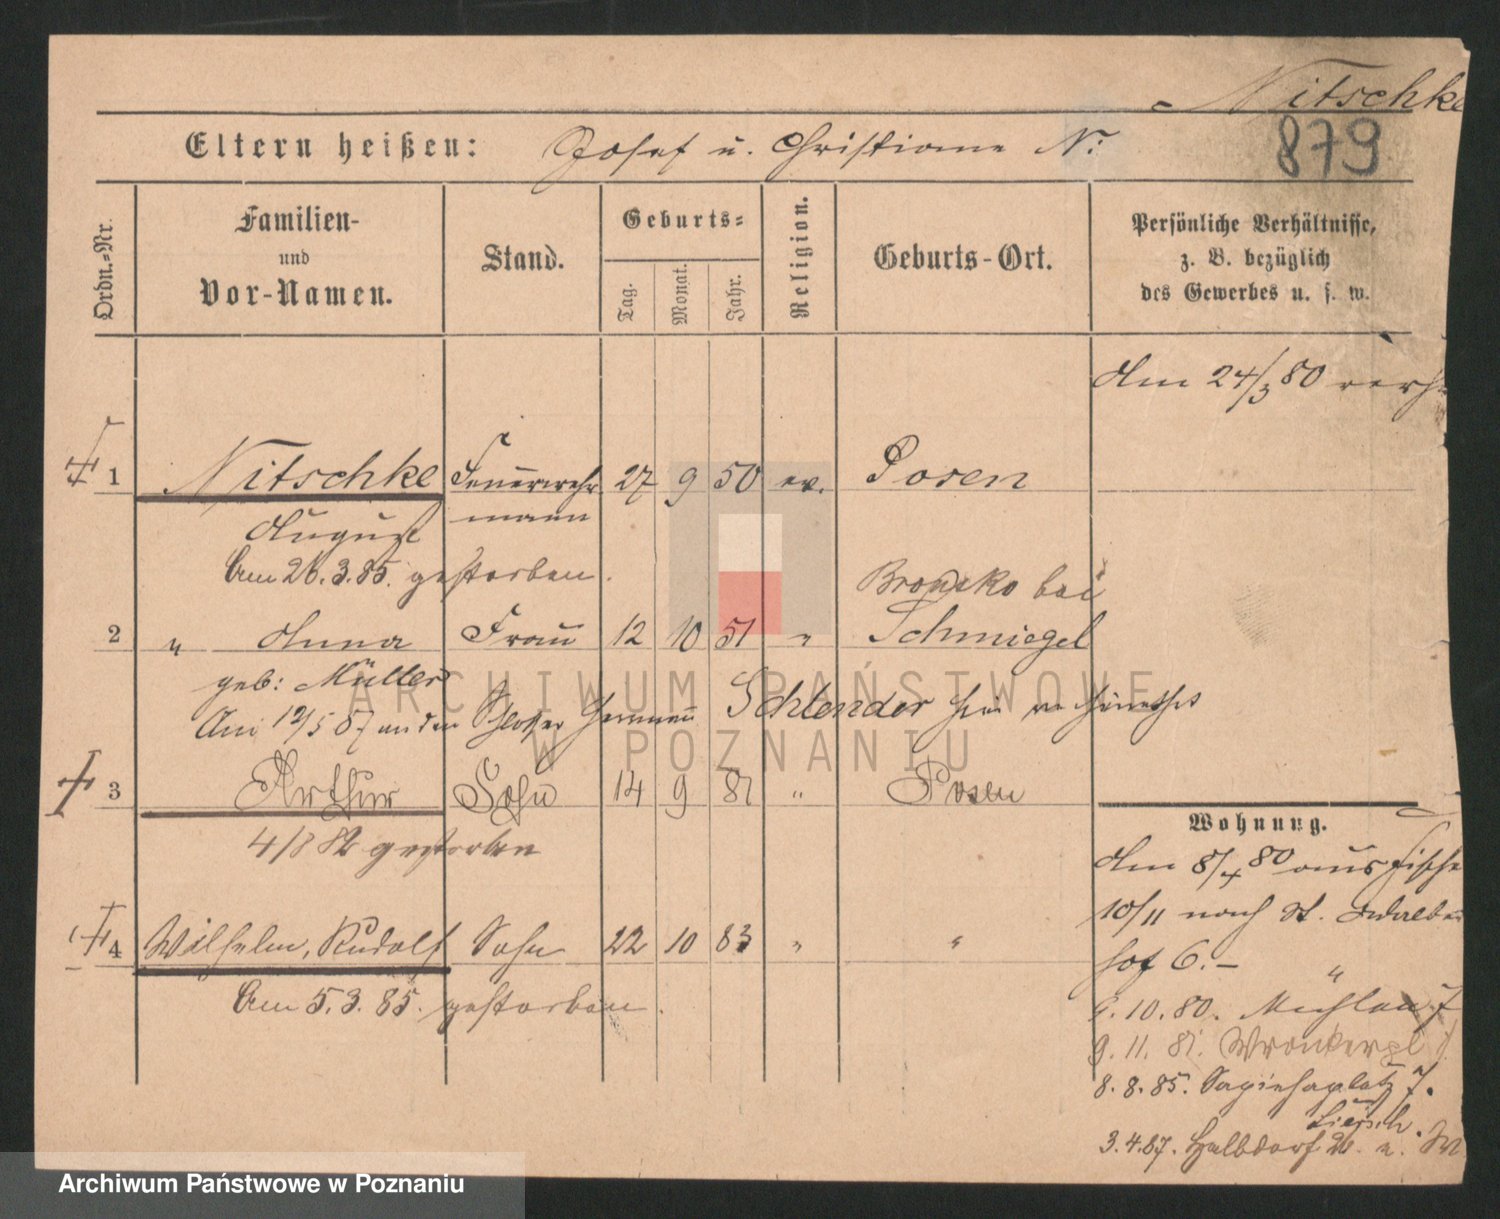 Nitschke
879
Eltern heißen: Josef u. Christiane N:
Ordn.-Nr.
Familien-
und
Vor-Namen.
Stand.
Geburts-
Tag.
Monat.
Jahr.
Religion.
Geburts-Ort.
Persönliche Verhältnisse,
z. B. bezüglich
des Gewerbes u. s. w.
Am 24/3 80 verh
1 Nitschke Feuerwehr 27 9 50 ev. Posen
August mann
Am 26.3.85. gestorben.
bei
2 " Anna Frau 12 10 51 " Schmiegel
geb: Müller
Am 12/5 87 an den Schlosser Hermann Schlender
3 Arthur Sohn 14 9 81 " Posen
4/3 82 gestorben
4 Wilhelm, Rudolf Sohn 22 10 83 " "
Am 5.3.85. gestorben.
Wohnung.
Am 8/4 80 aus Fische
10/11 nach St. Adalber
hof 6. – "
6.10.80. 7
9.11.81. Wronkerpl
8.8.85. Sapiehaplatz 7.
Liersch.
3.4.87. Halbdorf
ARCHIWUM PAŃSTWOWE
W POZNANIU
Archiwum Państwowe w Poznaniu